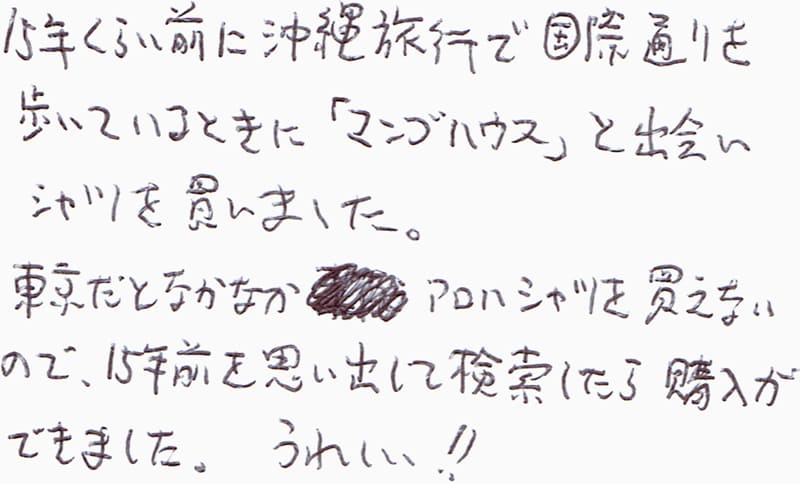 15年くらい前に沖縄旅行で国際通りを
歩いているときに「マンゴハウス」と出会い
シャツを買いました。
東京だとなかなか アロハシャツを買えない
ので、15年前を思い出して検索したら購入が
できました。 うれしい!!